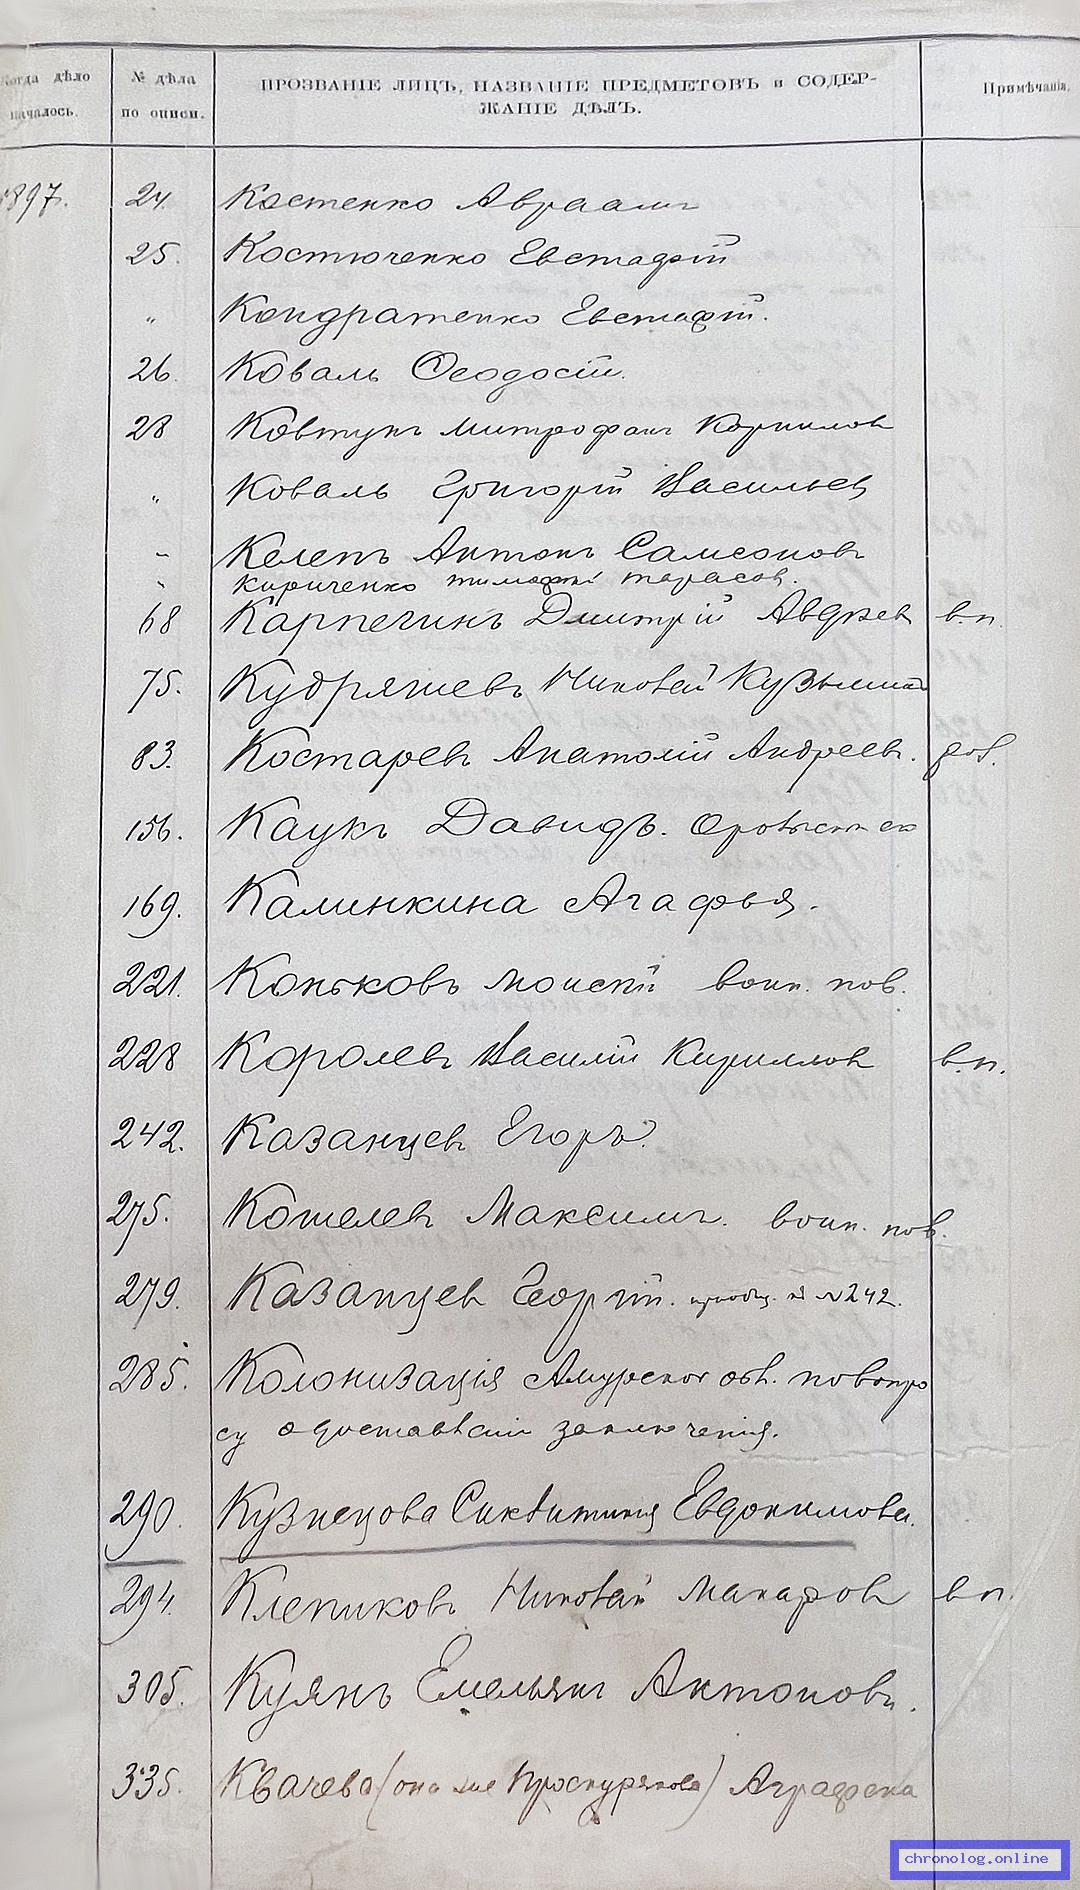 Когда дѣло началось.
№ дѣла по описи.
ПРОЗВАНІЕ ЛИЦЪ, НАЗВАНІЕ ПРЕДМЕТОВЪ и СОДЕР-
ЖАНІЕ ДѢЛЪ.
Примѣчанія.
1897. 24. Костенко Авраамъ
25. Костюченко Евстафій
" Кондратенко Евстафій.
26. Коваль Ѳеодосій.
28 Ковтунъ Митрофанъ Корнилов
" Коваль Григорій Васильев
" Келепъ Антонъ Самсонов
" Кириченко Тимофей Тарасов.
68 Карпечинъ Дмитрій Авдѣев в.п.
75. Кудряшевъ Николай Кузьмин
83. Костаревъ Анатолій Андреев. доб.
156. Каукъ Давидъ.
169. Калинкина Агафья.
221. Коньковъ Моисей воин. пов.
228 Королевъ Василій Кириллов в.п.
242. Казанцевъ Егоръ.
275. Кошелевъ Максимъ. воин. пов.
279. Казанцев Георгій. приобщ. къ №242.
285. Колонизація Амурской обл. по вопро
су о доставленіи заключенія.
290. Кузнецова Евдокимова.
294. Клепиковъ Николай Макаров в.п.
305. Куянъ Емельянъ Антоновъ.
335. Квачева (она же Проскурякова) Аграфена
chronolog.online